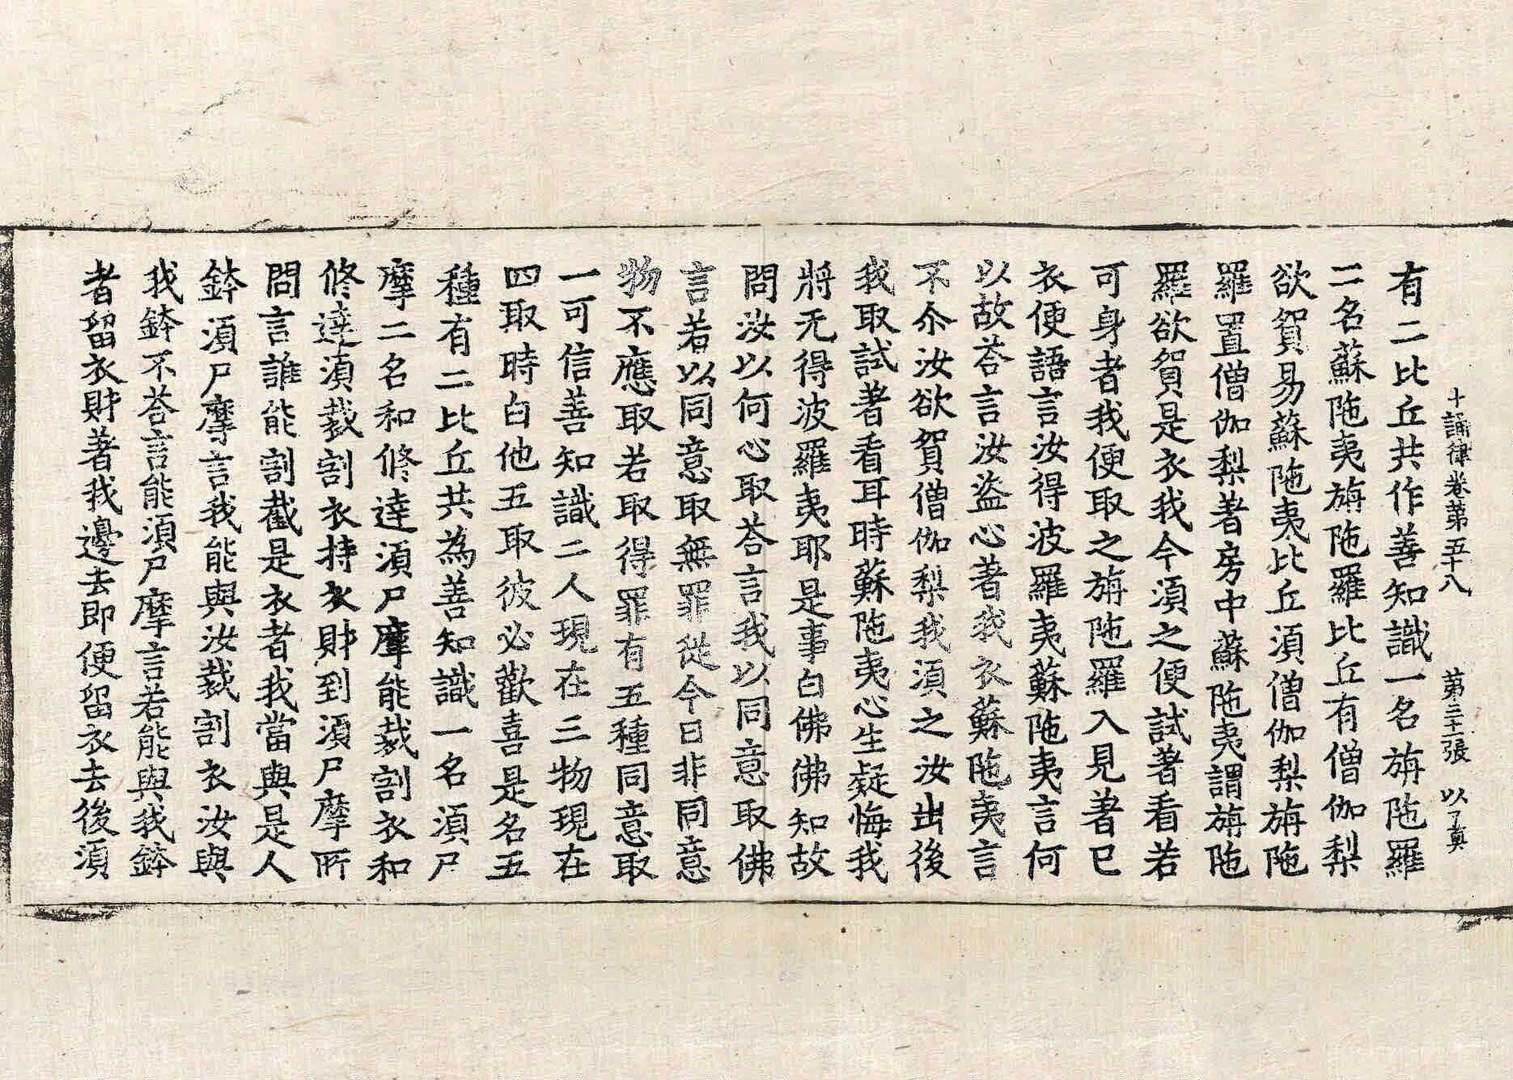 十誦律卷第五十八 第三十二張 以
有二比丘共作善知識一名旃陁羅
二名蘇陁夷旃陁羅比丘有僧伽梨
欲貿易蘇陁夷比丘須僧伽梨旃陁
羅置僧伽梨著房中蘇陁夷謂旃陁
羅欲貿是衣我今須之便試著看若
可身者我便取之旃陁羅入見著已
衣便語言汝得波羅夷蘇陁夷言何
以故荅言汝盜心著我衣蘇陁夷言
不尒汝欲貿僧伽梨我須之汝出後
我取試著看耳時蘇陁夷心生疑悔我
將无得波羅夷耶是事白佛佛知故
問汝以何心取荅言我以同意取佛
言若以同意取無罪從今日非同意
物不應取若取得罪有五種同意取
一可信善知識二人現在三物現在
四取時白他五取彼必歡喜是名五
種有二比丘共為善知識一名須尸
摩二名和修達須尸摩能裁割衣和
修達須裁割衣持衣財到須尸摩所
問言誰能割截是衣者我當與是人
鉢須尸摩言我能與汝裁割衣汝與
我鉢不荅言能須尸摩言若能與我鉢
者留衣財著我邊去即便留衣去後須